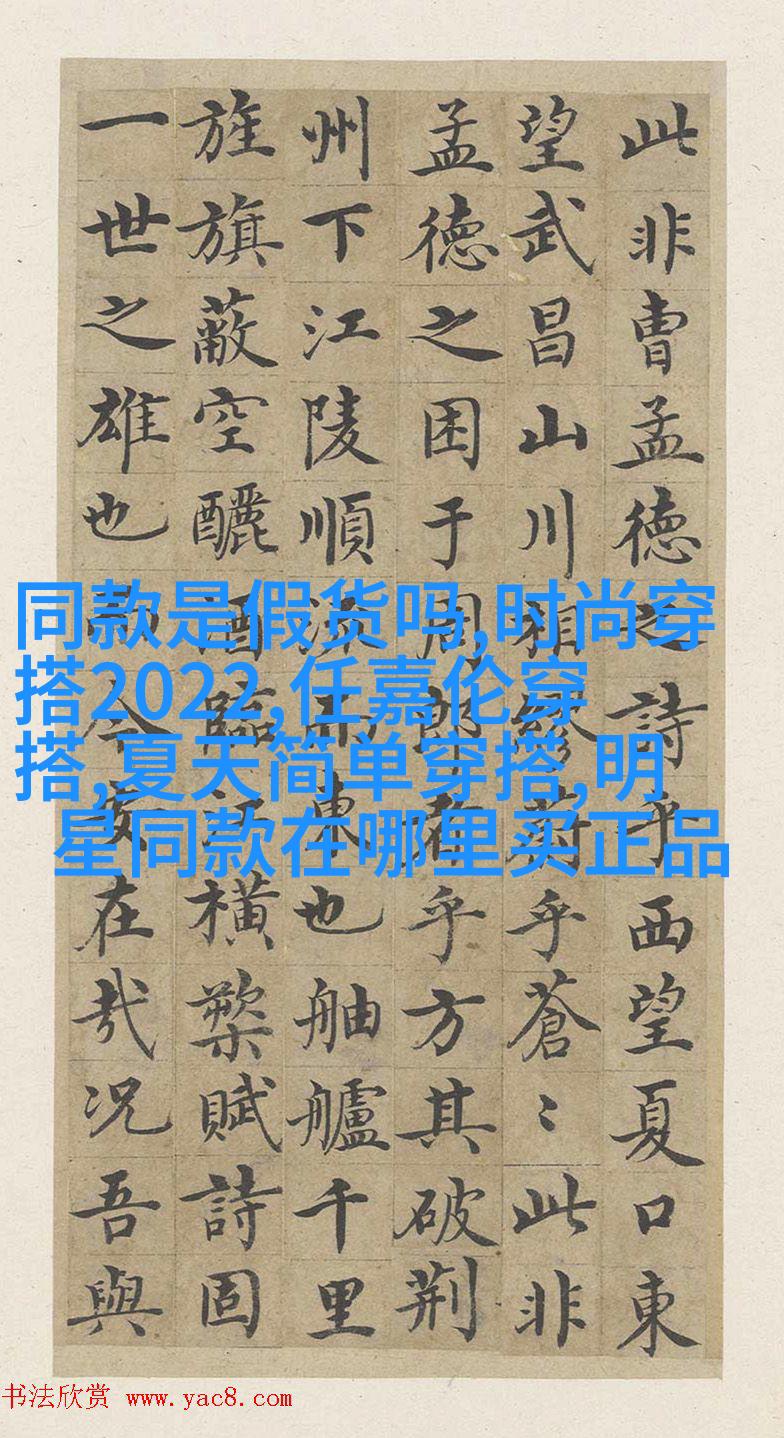 此非曹孟德之詩乎西望夏口東
望武昌山川相繆蔚乎蒼〻此非
孟德之困于周郎者乎方其破荆
州下江陵順流而東也舳艫千里
旌旗蔽空釃酒臨江橫槊賦詩固
一世之雄也而今安在哉况吾與
同款是假货吗,时尚穿
搭2022,任嘉伦穿
搭,夏天简单穿搭,明
星同款在哪里买正品
书法欣赏 www.yac8.com